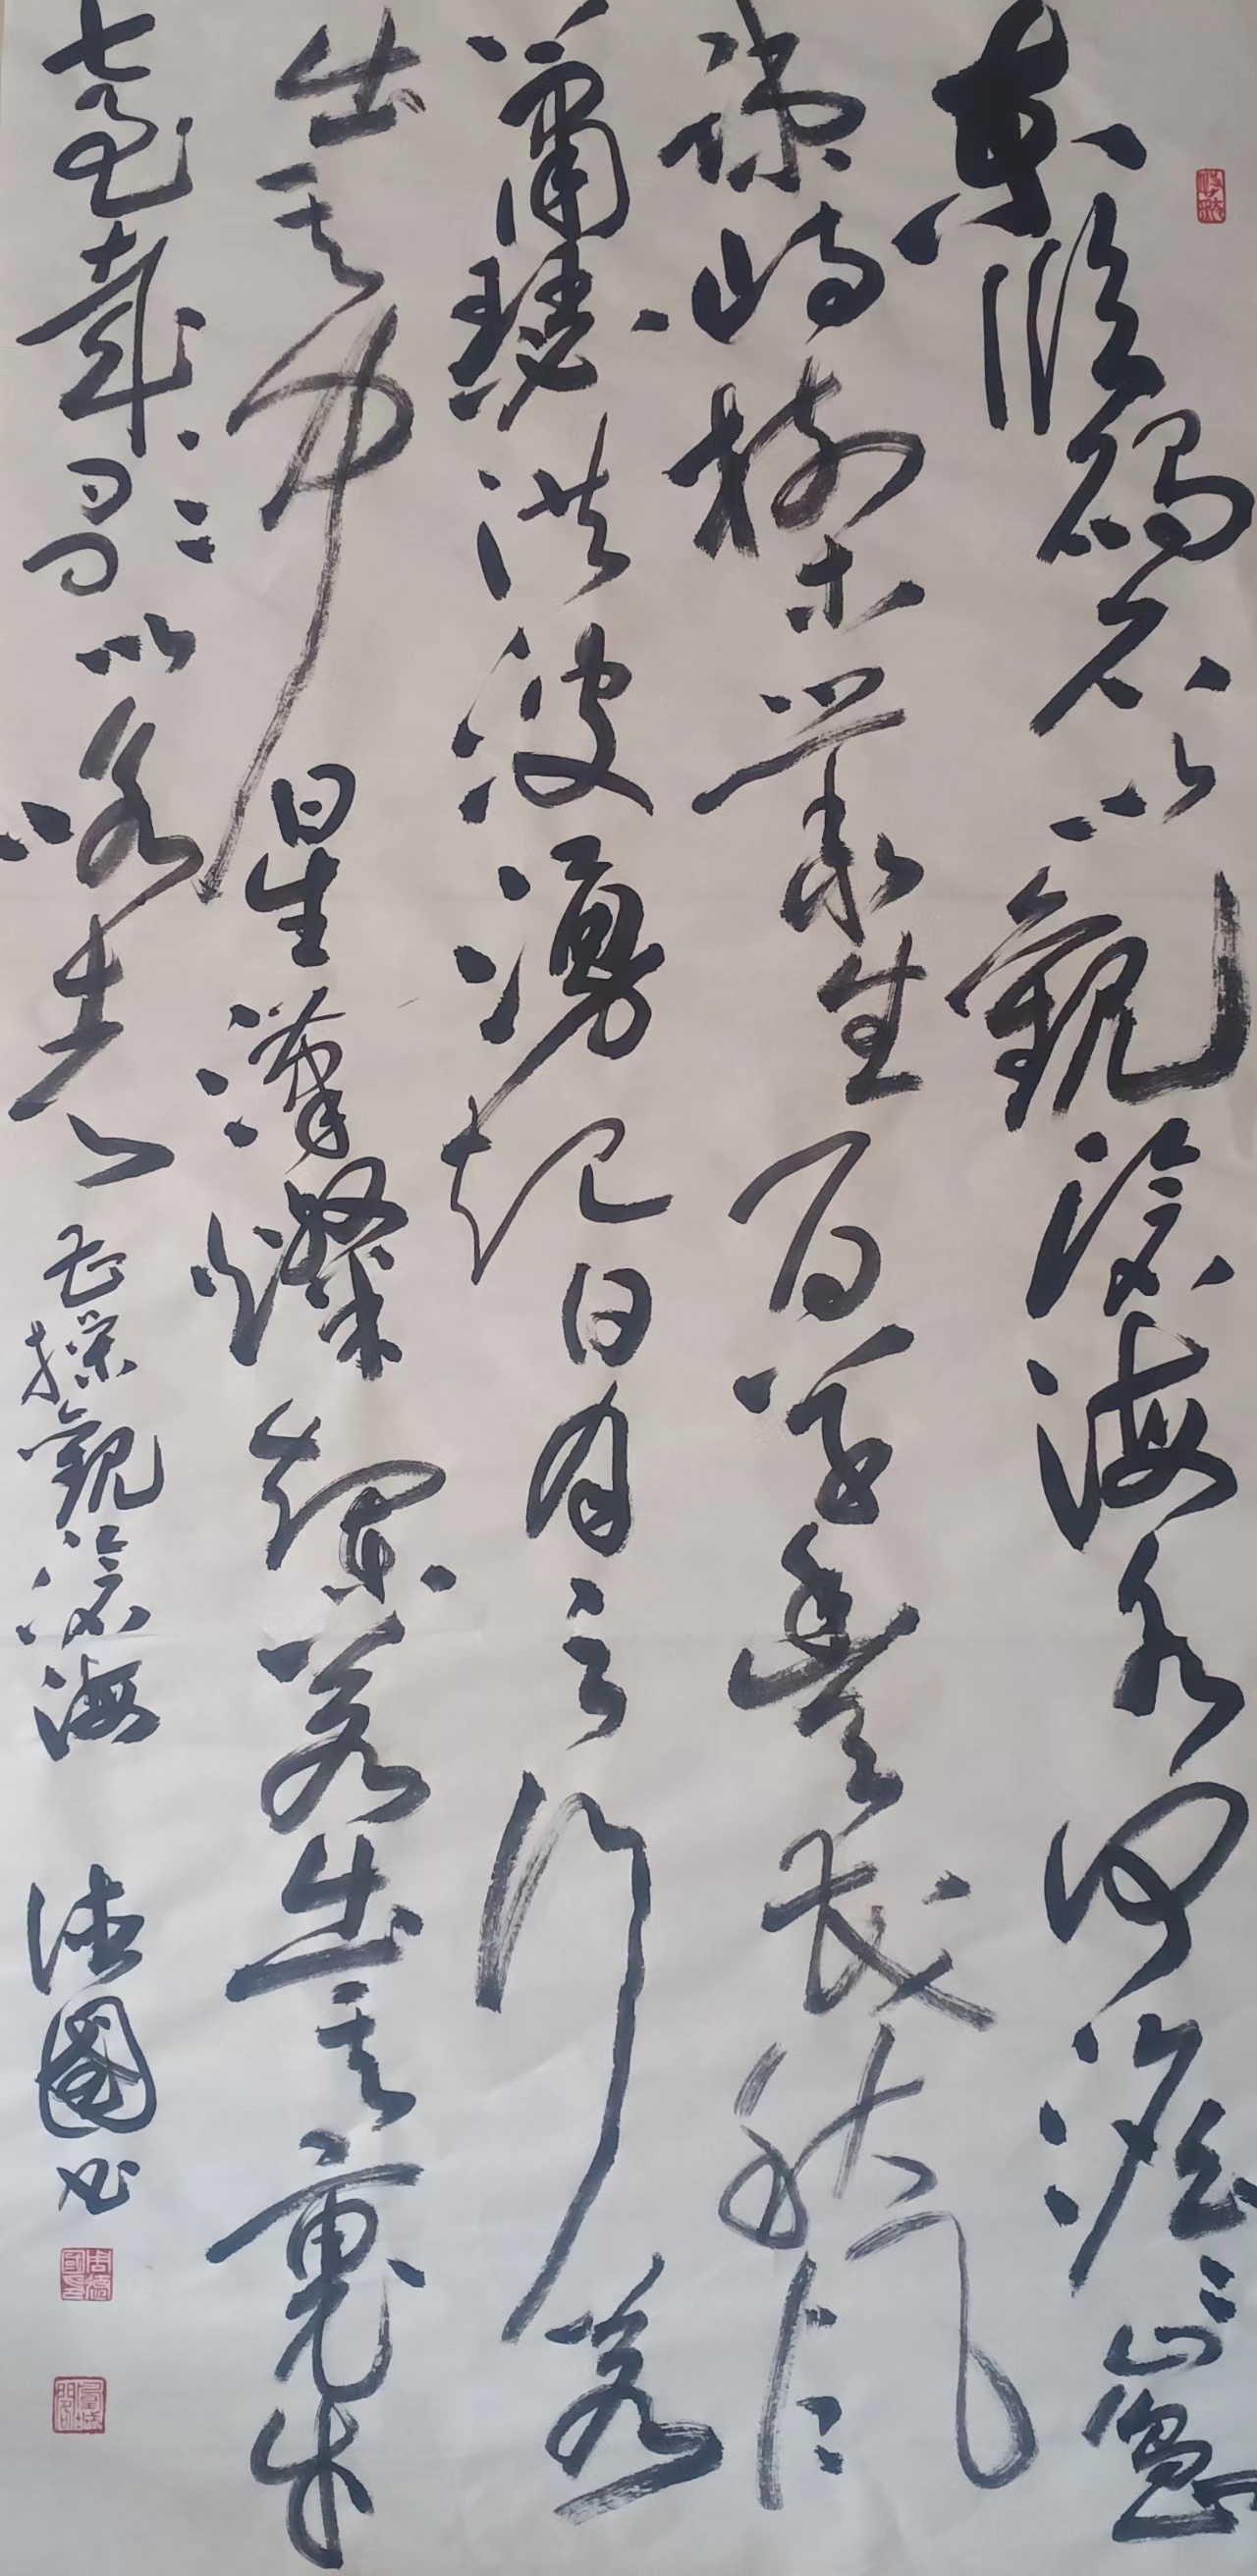 東臨碣石以觀滄海水何澹〻山島
竦峙樹木叢生百草豐茂秋風
蕭瑟洪波湧起日月之行若
出其中星漢燦爛若出其裏幸
甚至哉歌以詠志 曹操觀滄海 德國書
周德國印